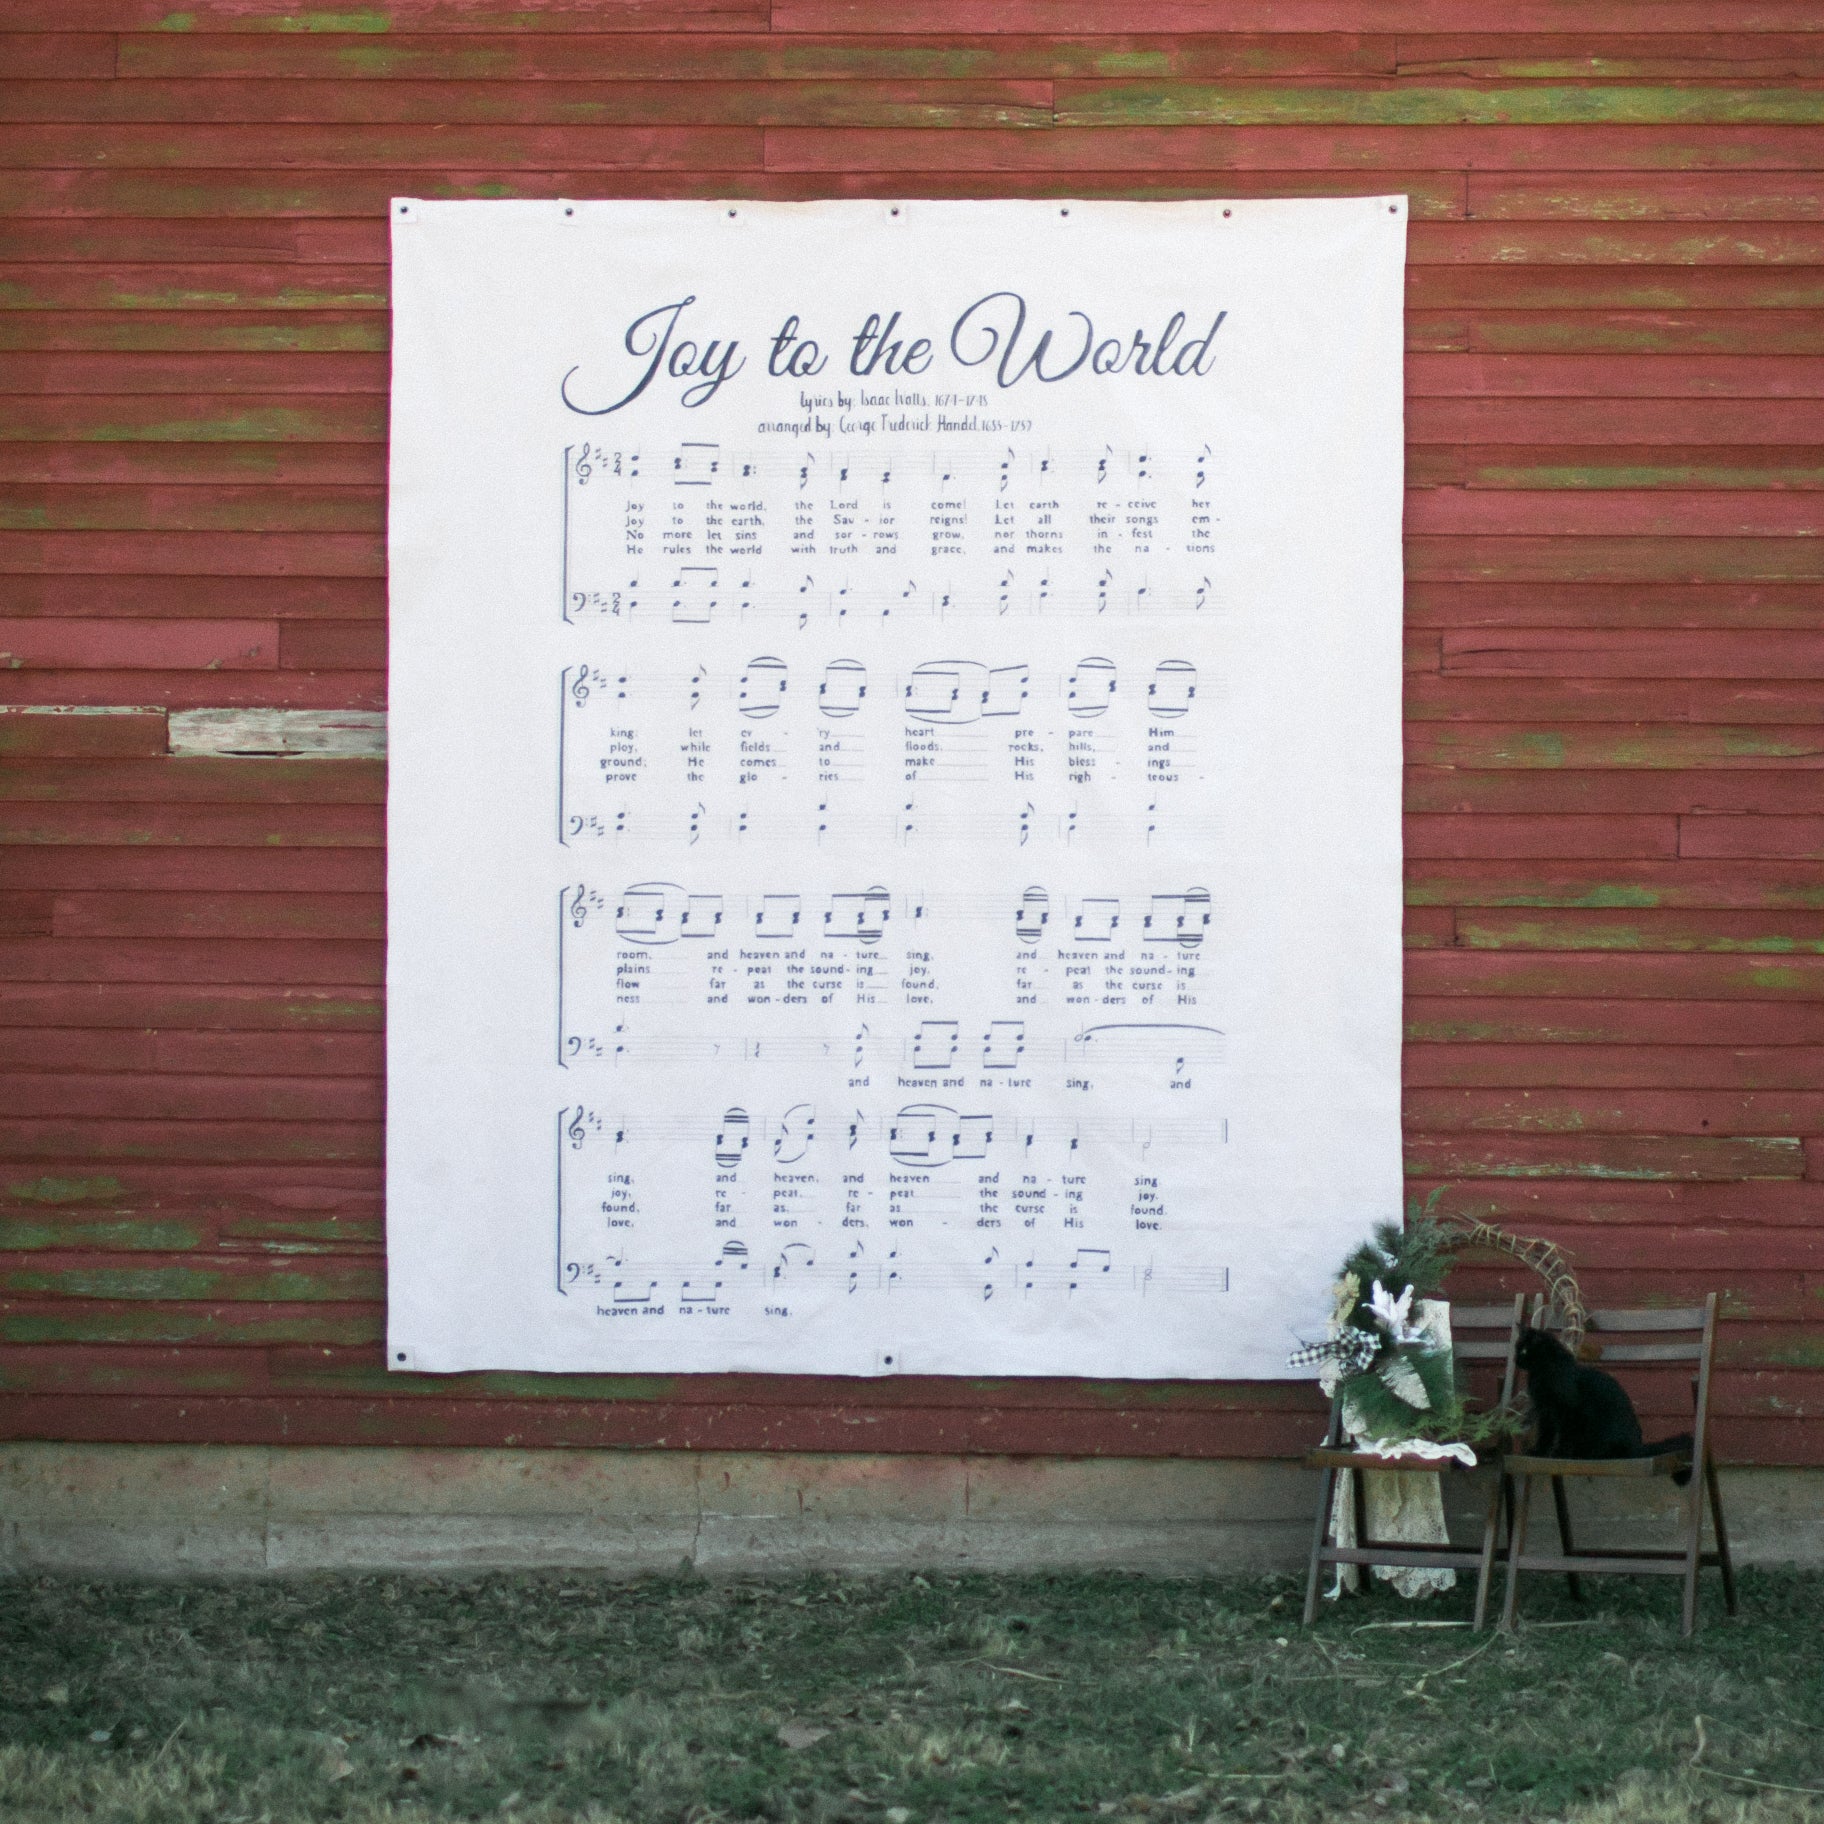 Joy to the World
lyrics by: Isaac Watts, 1674-1748
arranged by: George Frederick Handel, 1685-1759
2 4
Joy to the world, the Lord is come! Let earth re - ceive her
Joy to the earth, the Sav - ior reigns! Let all their songs em -
No more let sins and sor - rows grow, nor thorns in - fest the
He rules the world with truth and grace, and makes the na - tions
2 4
king; let ev - 'ry heart pre - pare Him
ploy, while fields and floods, rocks, hills, and
ground; He comes to make His bless - ings
prove the glo - ries of His righ - teous -
room, and heaven and na - ture sing, and heaven and na - ture
plains re - peat the sound - ing joy, re - peat the sound - ing
flow far as the curse is found, far as the curse is
ness and won - ders of His love, and won - ders of His
and heaven and na - ture sing, and
sing, and heaven, and heaven and na - ture sing.
joy, re - peat, re - peat the sound - ing joy.
found, far as, far as the curse is found.
love, and won - ders, won - ders of His love.
heaven and na - ture sing,